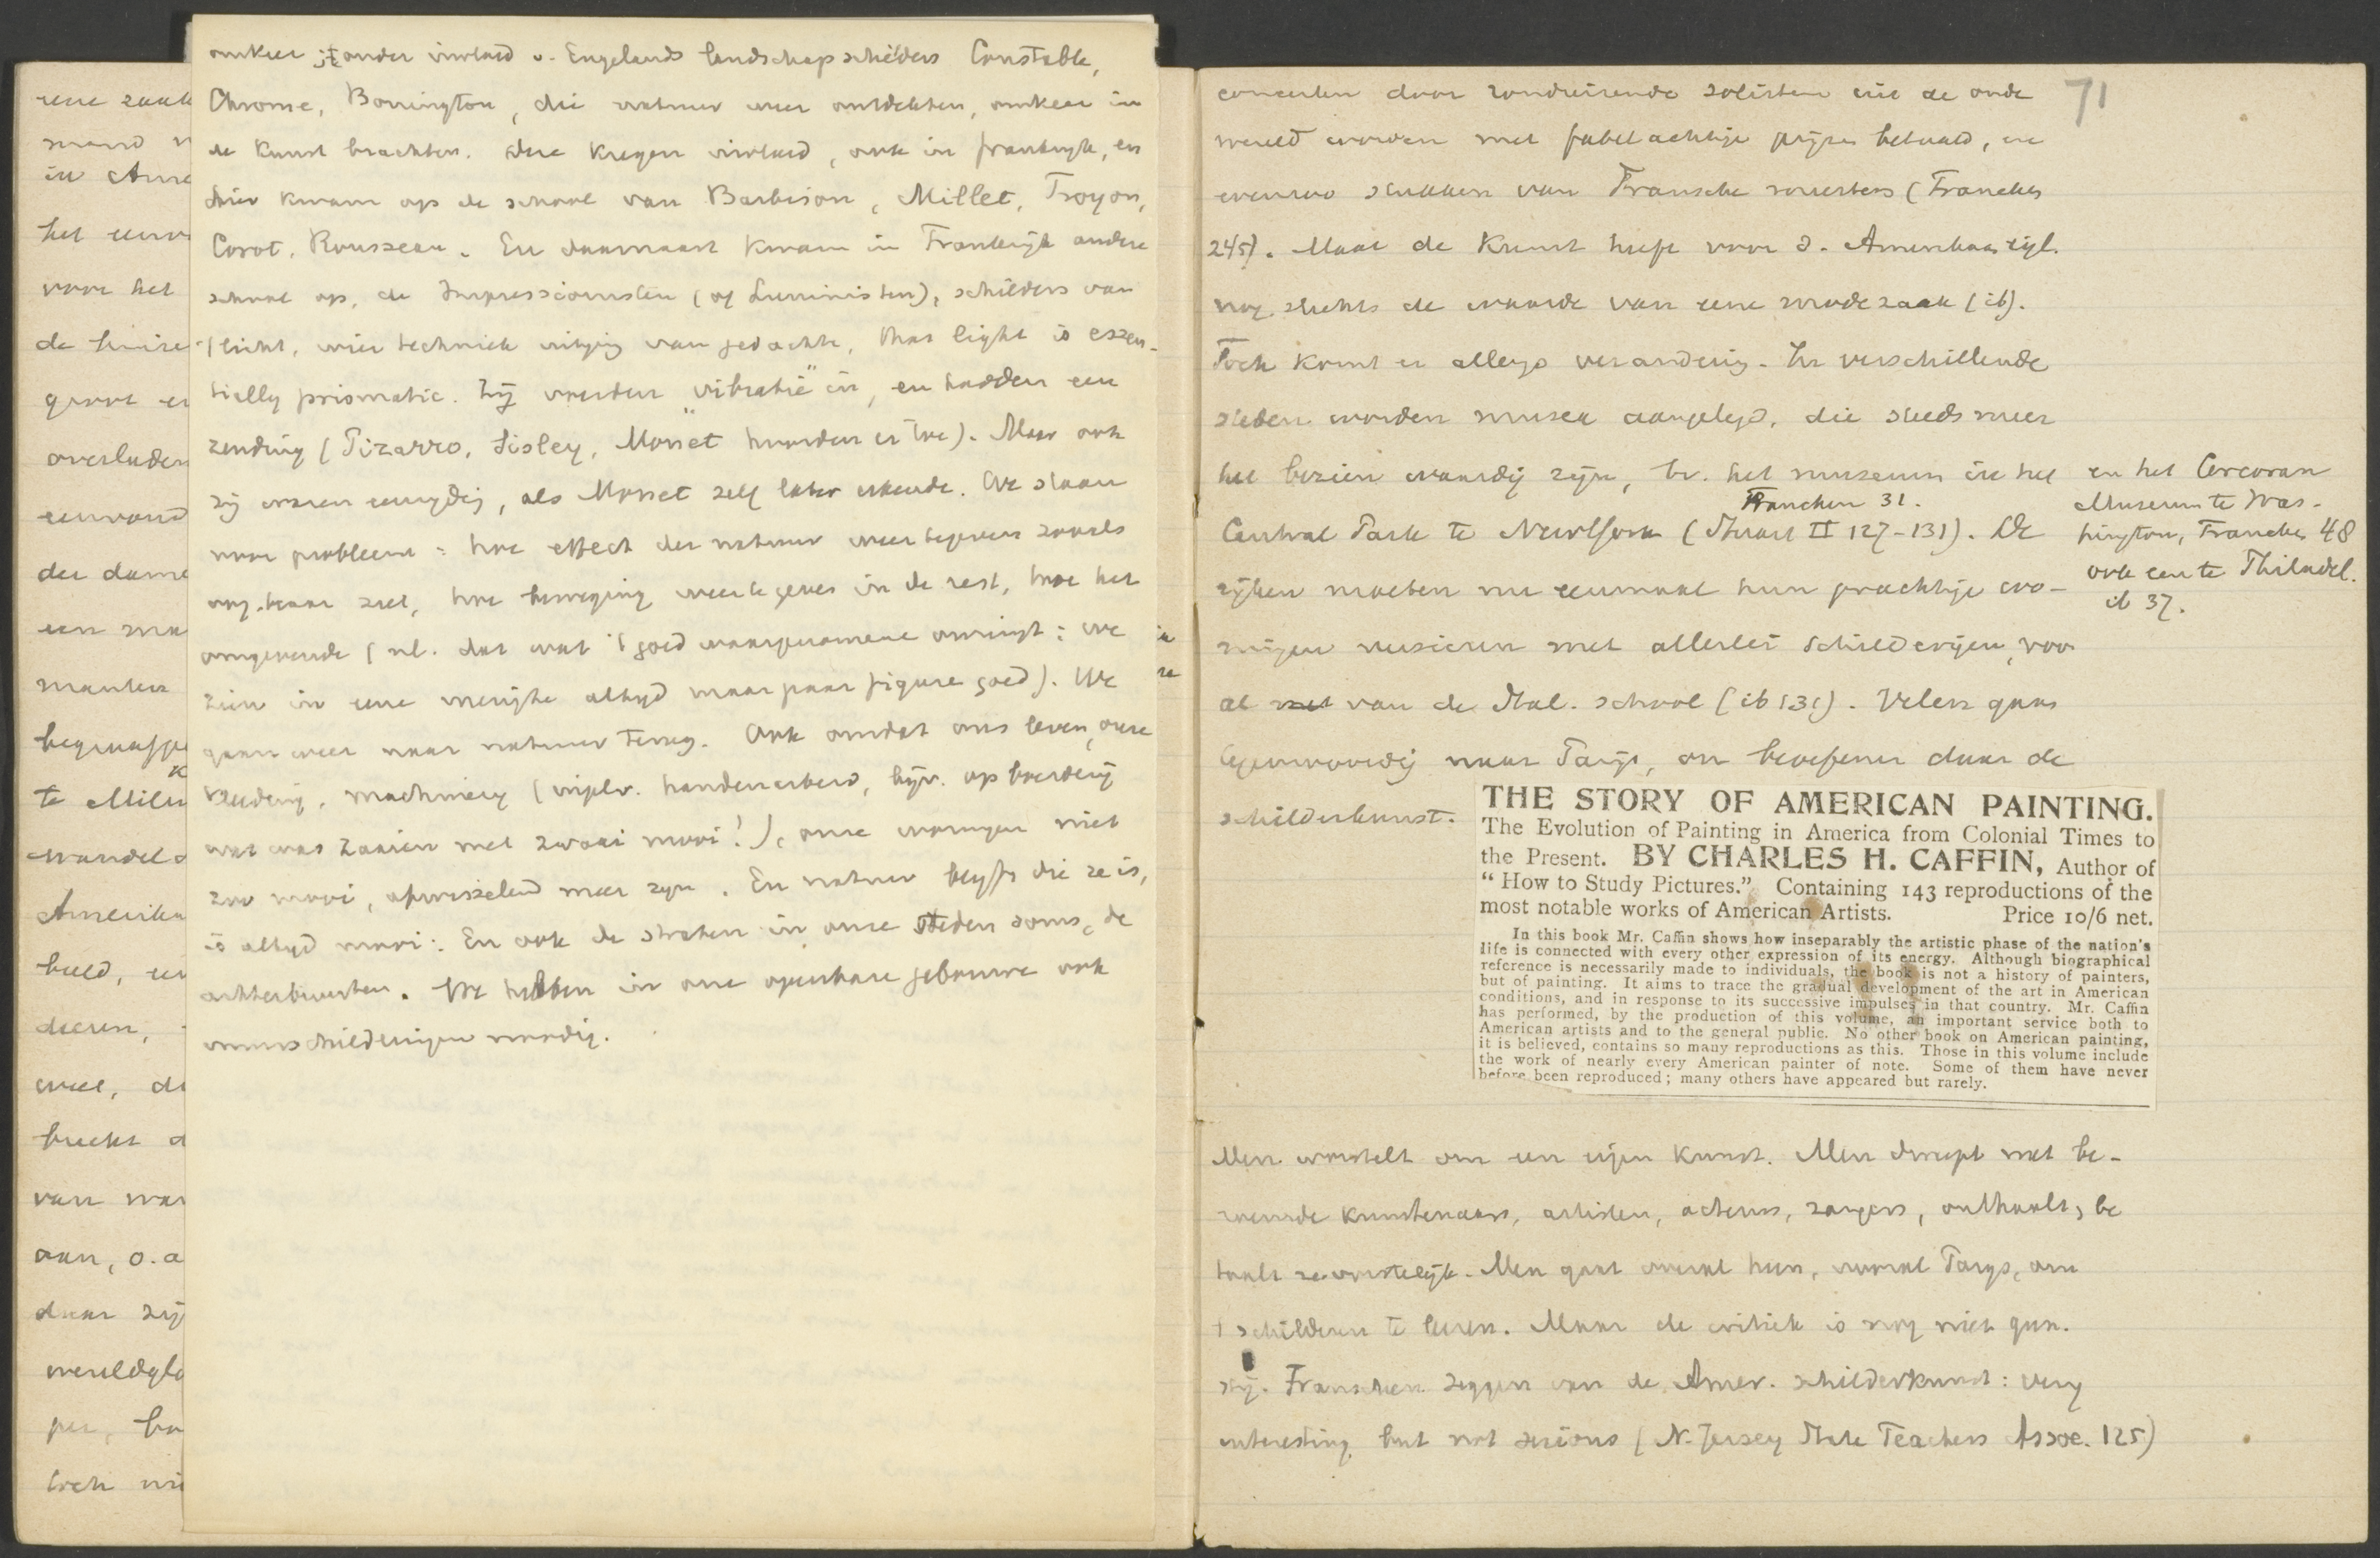 omkeer onder invloed v. Engelands landschapschilders Constable,
Chrome, Bonington, die natuur weer ontdekten, omkeer in
de kunst brachten. Deze kregen invloed, ook in frankryk, en
hier kwam op de school van Barbison, Millet, Troyon,
Corot, Rousseau. En daarnaast kwam in Frankrijk andere
school op, de Impressionisten (of Luministen), schilders van
't licht, wier techniek uitging van gedachte, that light is essen-
tially prismatic. Zij voerden "vibratie" in, en hadden een
zending (Pizarro, Sisley, Monet hoorden er toe). Maar ook
zij waren eenzydig, als Monet zelf later erkende. We staan
voor probleem: hoe effect der natuur weer te geven zooals
oog haar ziet, hoe beweging weer te geven in de rest, hoe het
omgevende (nl. dat wat 't goed waargenomene omringt: we
zien in eene menigte altyd maar paar figuren goed). We
gaan weer naar natuur terug. Ook omdat ons leven, onze
kleeding, machinery (in plv. handenarbeid, bijv. op boerderij
wat was zaaien met zwaai mooi!), onze woningen niet
zoo mooi, afwisselend meer zyn. En natuur blyft die ze is,
is altyd mooi. En ook de straten in onze steden soms, de
achterbuurten. We hebben in onze openbare gebouwen ook
muurschilderingen noodig.
eene zaak
in Ame
het eenv
voor het
de huise
groot en
overladen
eenvoud
der dame
een sma
te Milw
wandel
Amerika
beeld, en
dieren,
veel, di
breekt d
van wa
aan, o.a
daar zij
wereldglo
toch ni
71
concerten door rondreizende solisten uit de oude
wereld worden met fabelachtige prijzen betaald, en
evenzoo stukken van Fransche meesters (Francken
245). Maar de kunst heeft voor d. Amerikaan tijl.
nog slechts de waarde van eene modezaak (ib).
Toch komt er allengs verandering. In verschillende
steden worden musea aangelegd, die steeds meer
het bezien waardig zijn, bv. het museum in het
Francken 31.
Central Park te NewYork (Stuart II 127-131). De
rijken moeten nu eenmaal hun prachtige wo-
ningen versieren met allerlei schilderijen, voor
al van de Ital. school (ib 131). Velen gaan
tegenwoordig naar Parijs, om beoefenen daar de
schilderkunst.
en het Corcoran
Museum te Was-
hington, Francken 48
ook een te Philadel.
ib 37.
THE STORY OF AMERICAN PAINTING.
The Evolution of Painting in America from Colonial Times to
the Present. BY CHARLES H. CAFFIN, Author of
"How to Study Pictures." Containing 143 reproductions of the
most notable works of American Artists. Price 10/6 net.
In this book Mr. Caffin shows how inseparably the artistic phase of the nation's
life is connected with every other expression of its energy. Although biographical
reference is necessarily made to individuals, the book is not a history of painters,
but of painting. It aims to trace the gradual development of the art in American
conditions, and in response to its successive impulses in that country. Mr. Caffin
has performed, by the production of this volume, an important service both to
American artists and to the general public. No other book on American painting,
it is believed, contains so many reproductions as this. Those in this volume include
the work of nearly every American painter of note. Some of them have never
before been reproduced; many others have appeared but rarely.
Men worstelt om een eigen kunst. Men dweept met be-
roemde kunstenaars, artisten, acteurs, zangers, onthaalt, be
taalt ze vorstelijk. Men gaat overal heen, vooral Parys, om
't schilderen te leeren. Maar de critiek is nog niet gun-
stig. Franschen zeggen van de Amer. schilderkunst: very
interesting, but not serious (N. Jersey State Teachers Assoc. 125)